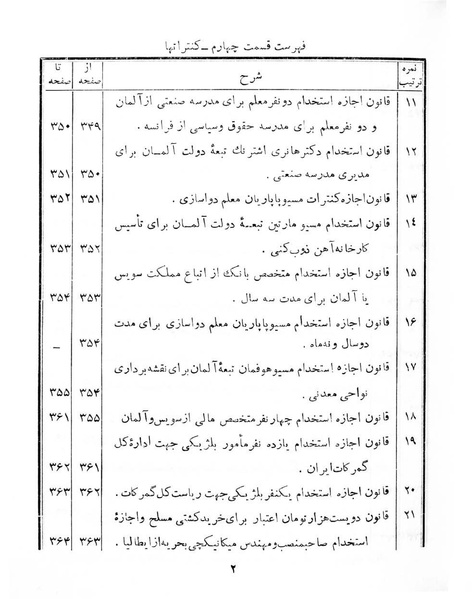 فهرست قسمت چهارم ـ کنتراتها
نمره ترتیب شرح از صفحه تا صفحه
۱۱ قانون اجازه استخدام دو نفر معلم برای مدرسه صنعتی از آلمان
و دو نفر معلم برای مدرسه حقوق و سیاسی از فرانسه . ۳۴۹ ۳۵۰
۱۲ قانون استخدام دکتر هانری اشترنك تبعهٔ دولت آلمان برای
مدیری مدرسه صنعتی . ۳۵۰ ۳۵۱
۱۳ قانون اجازه کنترات مسیو پاپاریان معلم دواسازی . ۳۵۱ ۳۵۲
۱۴ قانون استخدام مسیو مارتین تبعهٔ دولت آلمان برای تأسیس
کارخانه آهن ذوب کنی . ۳۵۲ ۳۵۳
۱۵ قانون اجازه استخدام متخصص بانك از اتباع مملکت سویس
یا آلمان برای مدت سه سال . ۳۵۳ ۳۵۴
۱۶ قانون اجازه استخدام مسیو پاپاریان معلم دواسازی برای مدت
دو سال و نه ماه . ۳۵۴ ـ
۱۷ قانون اجازه استخدام مسیو هوفمان تبعهٔ آلمان برای نقشه برداری
نواحی معدنی . ۳۵۴ ۳۵۵
۱۸ قانون اجازه استخدام چهار نفر متخصص مالی از سویس و آلمان ۳۵۵ ۳۶۱
۱۹ قانون اجازه استخدام یازده نفر مأمور بلژیکی جهت ادارهٔ کل
گمرکات ایران . ۳۶۱ ۳۶۲
۲۰ قانون اجازه استخدام یکنفر بلژیکی جهت ریاست کل گمرکات . ۳۶۲ ۳۶۳
۲۱ قانون دویست هزار تومان اعتبار برای خرید کشتی مسلح و اجازهٔ
استخدام صاحبمنصب و مهندس میکانیکچی بحریه از ایطالیا . ۳۶۳ ۳۶۴
۲